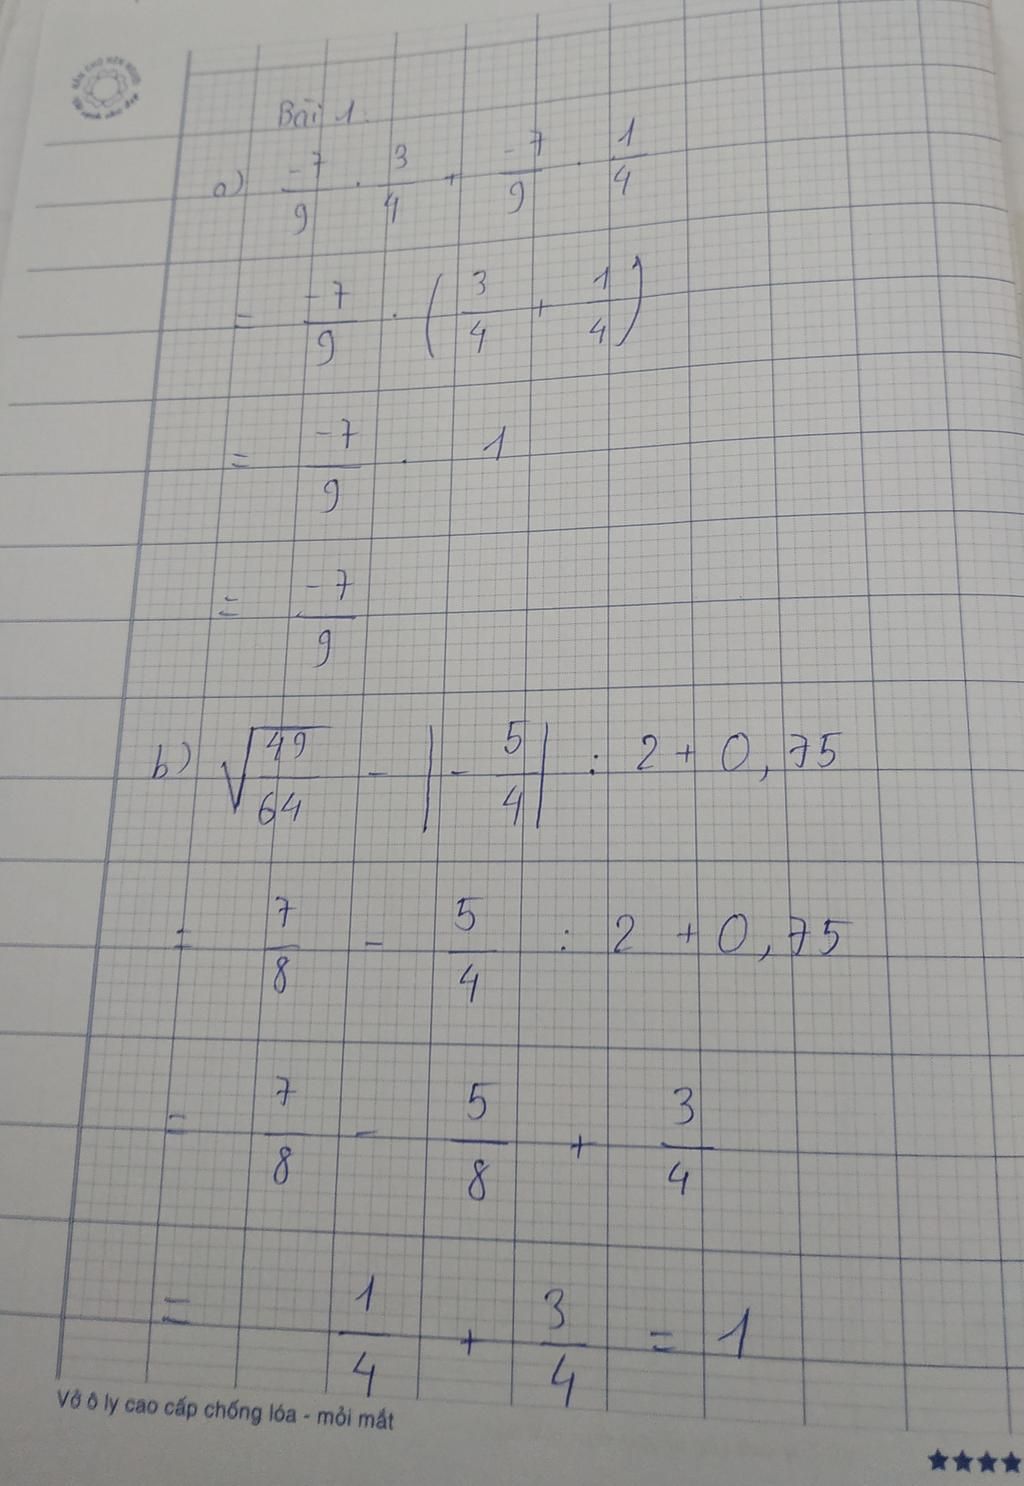 Bài 1.
a) -7/9 . 3/4 + -7/9 . 1/4
= -7/9 . (3/4 + 1/4)
= -7/9 . 1
= -7/9
b) √(49/64) - |-5/4| : 2 + 0,75
= 7/8 - 5/4 : 2 + 0,75
= 7/8 - 5/8 + 3/4
= 1/4 + 3/4 = 1
Vở ô ly cao cấp chống lóa - mỏi mắt